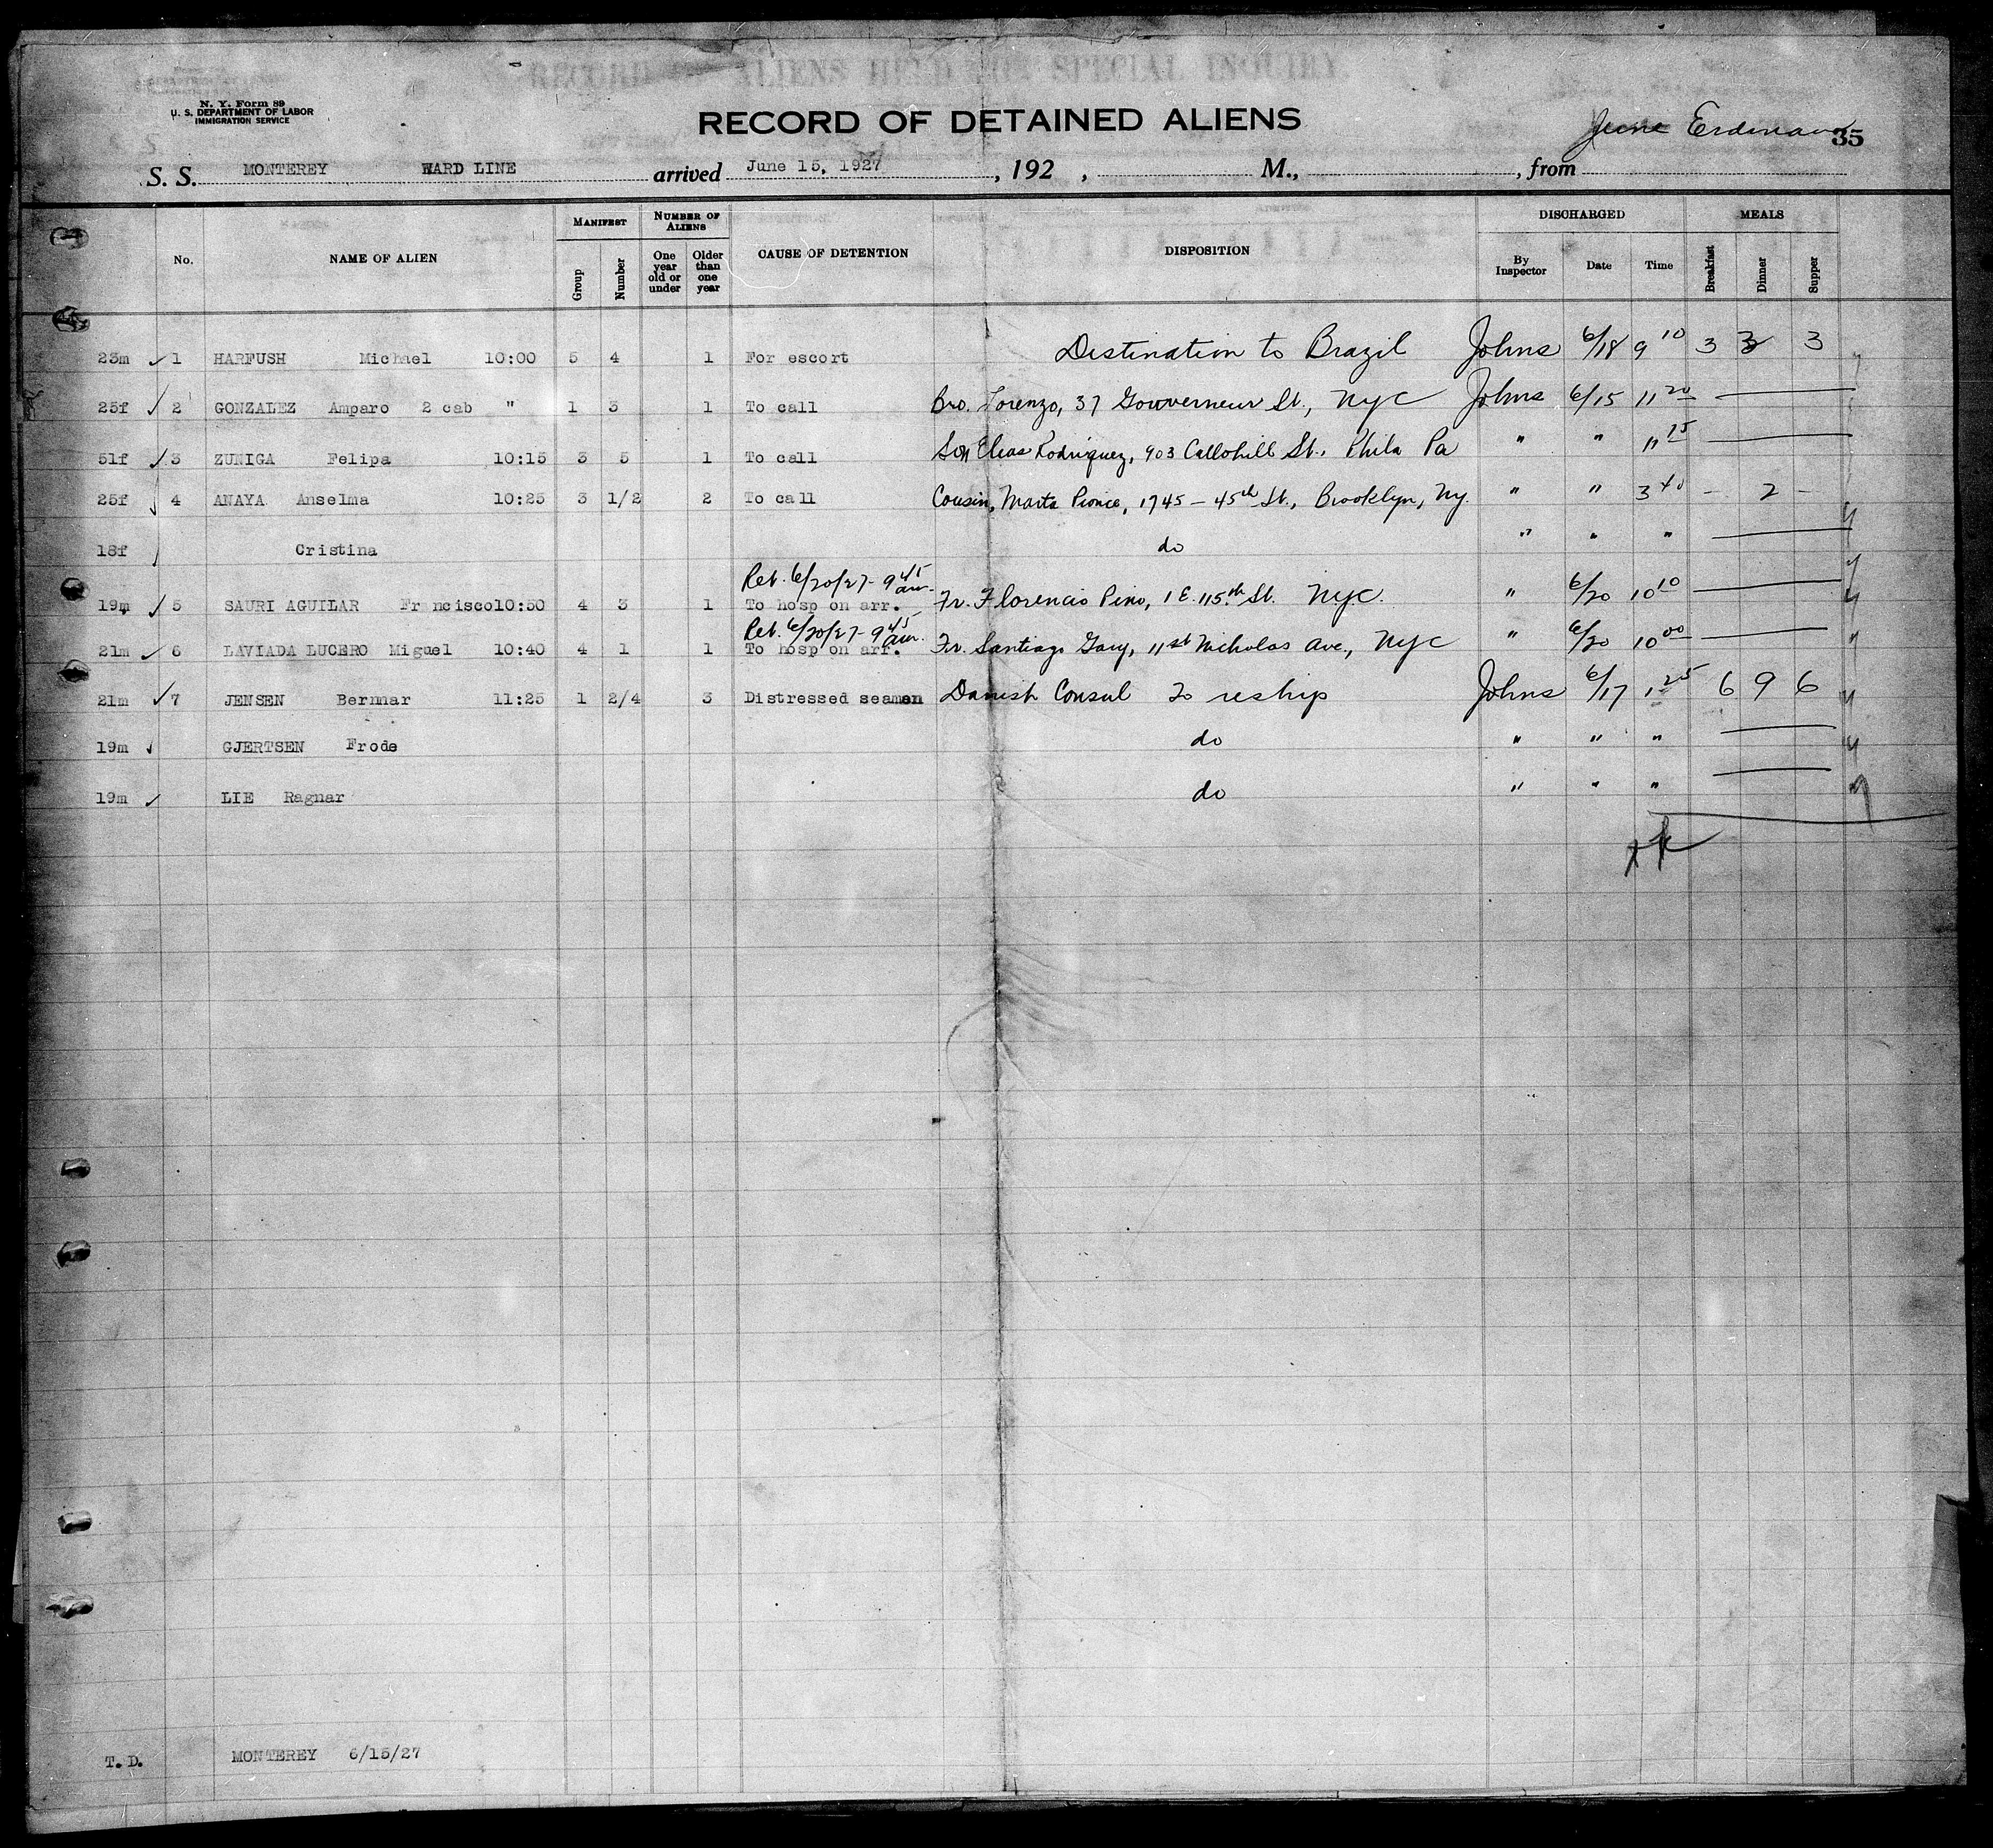 RECORD ALIENS HELD FOR SPECIAL INQUIRY
N. Y. Form 89
U. S. DEPARTMENT OF LABOR
IMMIGRATION SERVICE
RECORD OF DETAINED ALIENS
June Erdman
35
S. S. MONTEREY WARD LINE arrived June 15, 1927, 192 , M., , from
No. NAME OF ALIEN MANIFEST NUMBER OF ALIENS CAUSE OF DETENTION DISPOSITION DISCHARGED MEALS
Group Number One year old or under Older than one year By Inspector Date Time Breakfast Dinner Supper
23m 1 HARFUSH Michael 10:00 5 4 1 For escort Destination to Brazil Johns 6/18 9 10 3 3 3
25f 2 GONZALEZ Amparo 2 cab " 1 3 1 To call Bro. Lorenzo, 37 Gouverneur St., NYC Johns 6/15 11 20
51f 3 ZUNIGA Felipa 10:15 3 5 1 To call Son Elias Rodriguez, 903 Callohill St. Phila Pa " " 11 25
25f 4 ANAYA Anselma 10:25 3 1/2 2 To call Cousin, Marta Pionce, 1745 - 45th St., Brooklyn, Ny. " " 3 40 - 2 -
18f Cristina do " " "
Ret. 6/20/27 - 9 45 am.
19m 5 SAURI AGUILAR Fr ncisco 10:50 4 3 1 To hosp on arr. Fr. Florencio Pino, 1 E. 115th St. NYC. " 6/20 10 10
Ret. 6/20/27 - 9 45 am.
21m 6 LAVIADA LUCERO Miguel 10:40 4 1 1 To hosp on arr. Fr. Santiago Gary, 11 St Nicholas Ave., NYC " 6/20 10 00
21m 7 JENSEN Bernmar 11:25 1 2/4 3 Distressed seamen Danish Consul To reship Johns 6/17 1 25 6 9 6
19m GJERTSEN Frode do " " "
19m LIE Ragnar do " " "
T. D. MONTEREY 6/15/27